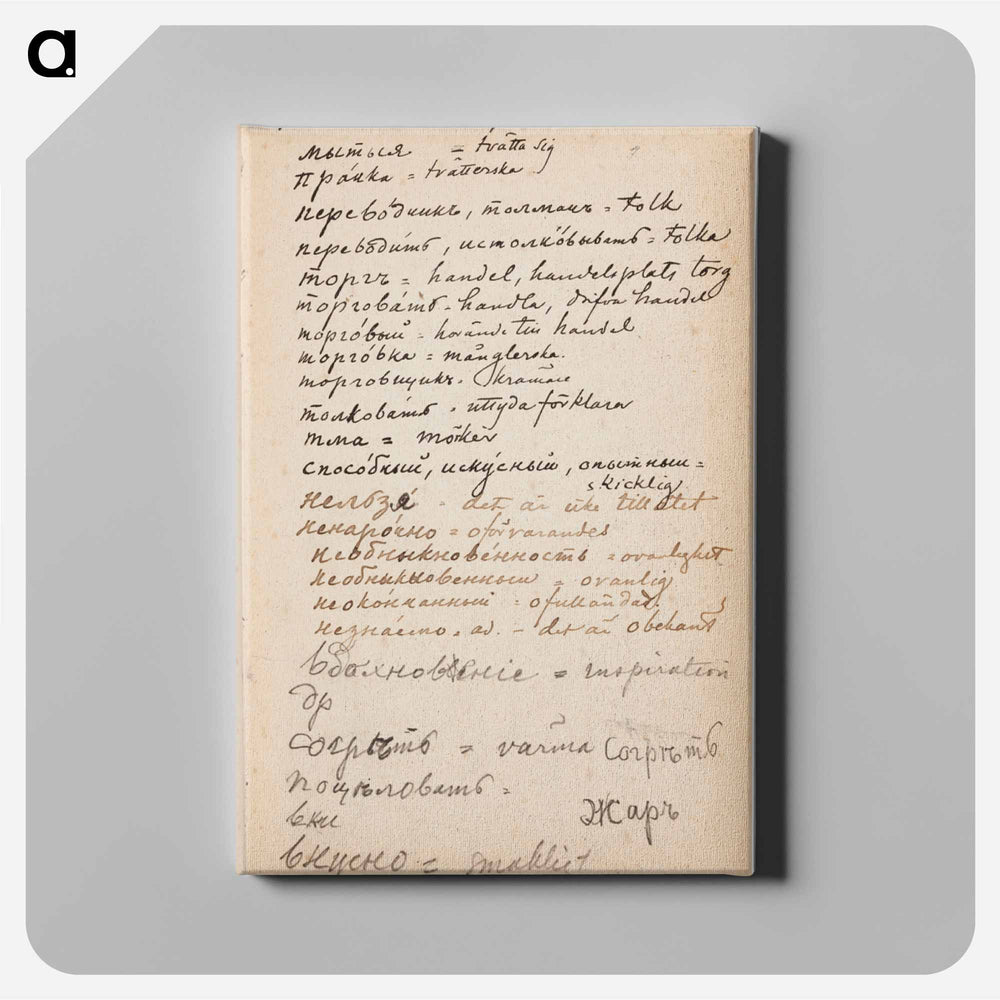 a.
мыться = tvätta sig
прачка = tvätterska
перево́дчикъ, толмачъ = tolk
переводи́ть, истолко́вывать = tolka
торгъ = handel, handelsplats torg
торгова́ть = handla, drifva handel
торго́вый = hörande till handel
торго́вка = månglerska.
торговщикъ - kramare
толкова́ть = uttyda förklara
тма = mörker
спосо́бный, иску́сный, опытный =
skicklig
нельзя́ - det är icke tillåtet
ненаро́чно = oförvarandes
необыкнове́нность = ovanlighet
необыкновенный = ovanlig
неоко́нчанный = ofulländad.
незна́емо. ad. - det är obekant
вдохновеніе = inspiration
др
согрѣть = värma Согрѣть
поцѣловать =
вки Жаръ
вкусно = smakligt